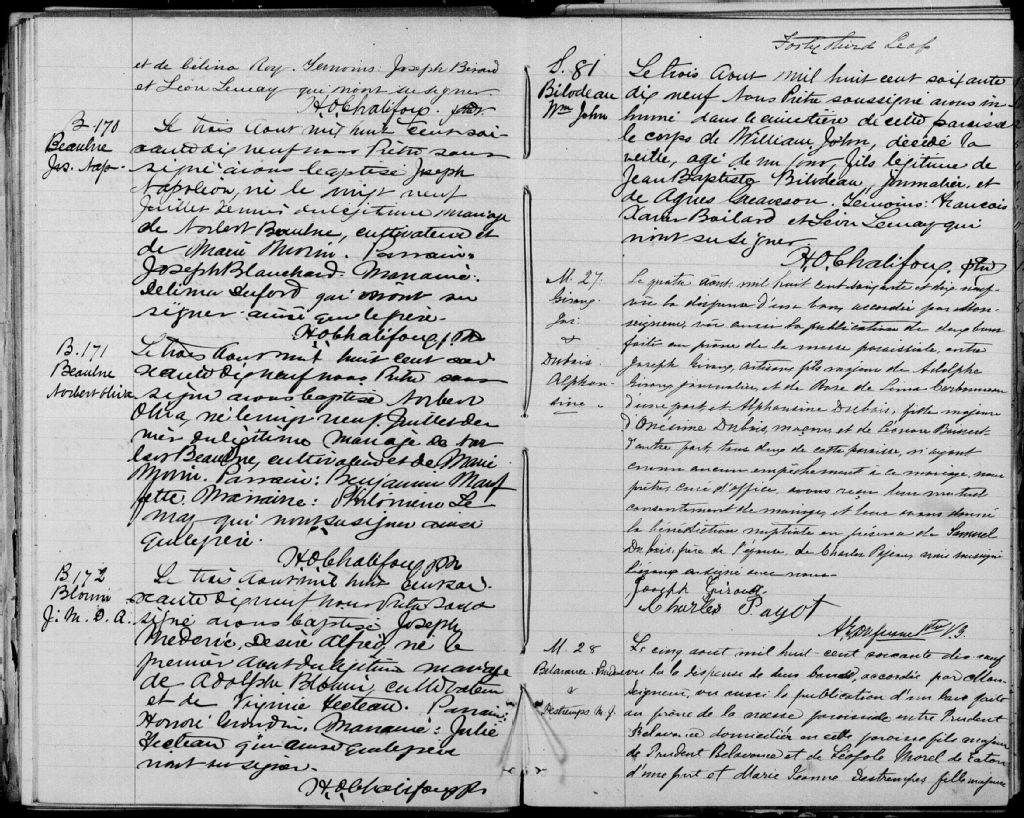 et de Célina Roy. Temoins: Joseph Girard
et Léon Lemay qui n'ont su signer
H.O. Chalifoux ptre
B. 170
Beaulne
Jos. Nap.
Le trois Aout mil huit cent soi-
xante dix neuf nous Prêtre sous
signé avons baptisé Joseph
Napoléon, né le vingt neuf
Juillet dernier du légitime mariage
de Norbert Beaulne, cultivateur et
de Marie Morin. Parrain:
Joseph Blanchard. Marraine:
Delima Duford qui n'ont su
signer ainsi que le père.
H.O. Chalifoux ptre
B. 171
Beaulne
Norbert Oliva
Le trois Aout mil huit cent soi
xante dix neuf nous Prêtre sous
signé avons baptisé Norbert
Oliva, né le vingt neuf Juillet der
nier du légitime mariage de Nor
bert Beaulne, cultivateur et de Marie
Morin. Parrain: Benjamin
Marraine: Philomène Le
may qui n'ont su signer ainsi
que le père.
H.O. Chalifoux ptre
B 172
Blouin
J. M. D. A.
Le trois Aout mil huit cent soi-
xante dix neuf nous Prêtre sous
signé avons baptisé Joseph
Mederic, Desiré Alfred, né le
premier Aout du légitime mariage
de Adolphe Blouin, cultivateur
et de Virginie Fecteau. Parrain:
Honoré Marraine: Julie
Fecteau qui ainsi que le père
n'ont su signer.
H.O. Chalifoux ptr
Forty third Leaf
S. 81
Bilodeau
Wm John
Le trois Aout mil huit cent soixante
dix neuf Nous Prêtre soussigné avons in-
humé dans le cimetière de cette paroisse
le corps de William John, décédé la
veille, agé de un jour, fils légitime de
Jean Baptiste Bilodeau, journalier, et
de Agnes Greaveson. Temoins: Francois
Xavier Boilard et Léon Lemay qui
n'ont su signer
H.O. Chalifoux, ptre
M. 27.
Giroux
Jos:
&
Dubois
Alphon
sine
Le quatre Aout mil huit cent soixante et dix neuf
vu la dispense d'un ban accordée par Mon-
seigneur, vu aussi la publication de deux bans
faite au prône de la messe paroissiale, entre
Joseph Giroux, artisan, fils majeur de Adolphe
Giroux, journalier, et de Rose de Lima Carbonneau
d'une part et Alphonsine Dubois, fille majeure
d'Onésime Dubois, maçon, et de Léonore
d'autre part, tous deux de cette paroisse, n'ayant
connu aucun empêchement à ce mariage, nous
prêtre, curé d'office, avons reçu leur mutuel
consentement de mariage, et leur avons donné
la bénédiction nuptiale en présence de Samuel
Dubois, frère de l'épouse, de Charles
signé avec nous.
Joseph Giroux
Charles Payot
ptre V.G.
M. 28
Belavance Prudent
&
Destremps M. J.
Le cinq aout mil huit-cent soixante dix neuf
vu la dispense de deux bancs, accordée par Mon
seigneur, vu aussi la publication d'un banc faite
au prône de la messe paroissiale entre Prudent
Belavance domicilié en cette paroisse fils majeur
de Prudent Belavance et de Léofole Morel de Eaton
d'une part et Marie Jeanne Destrempes fille majeure